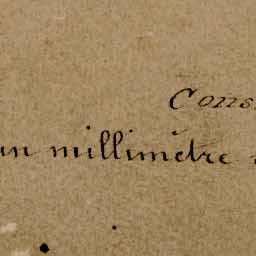 Cons
un millimètre